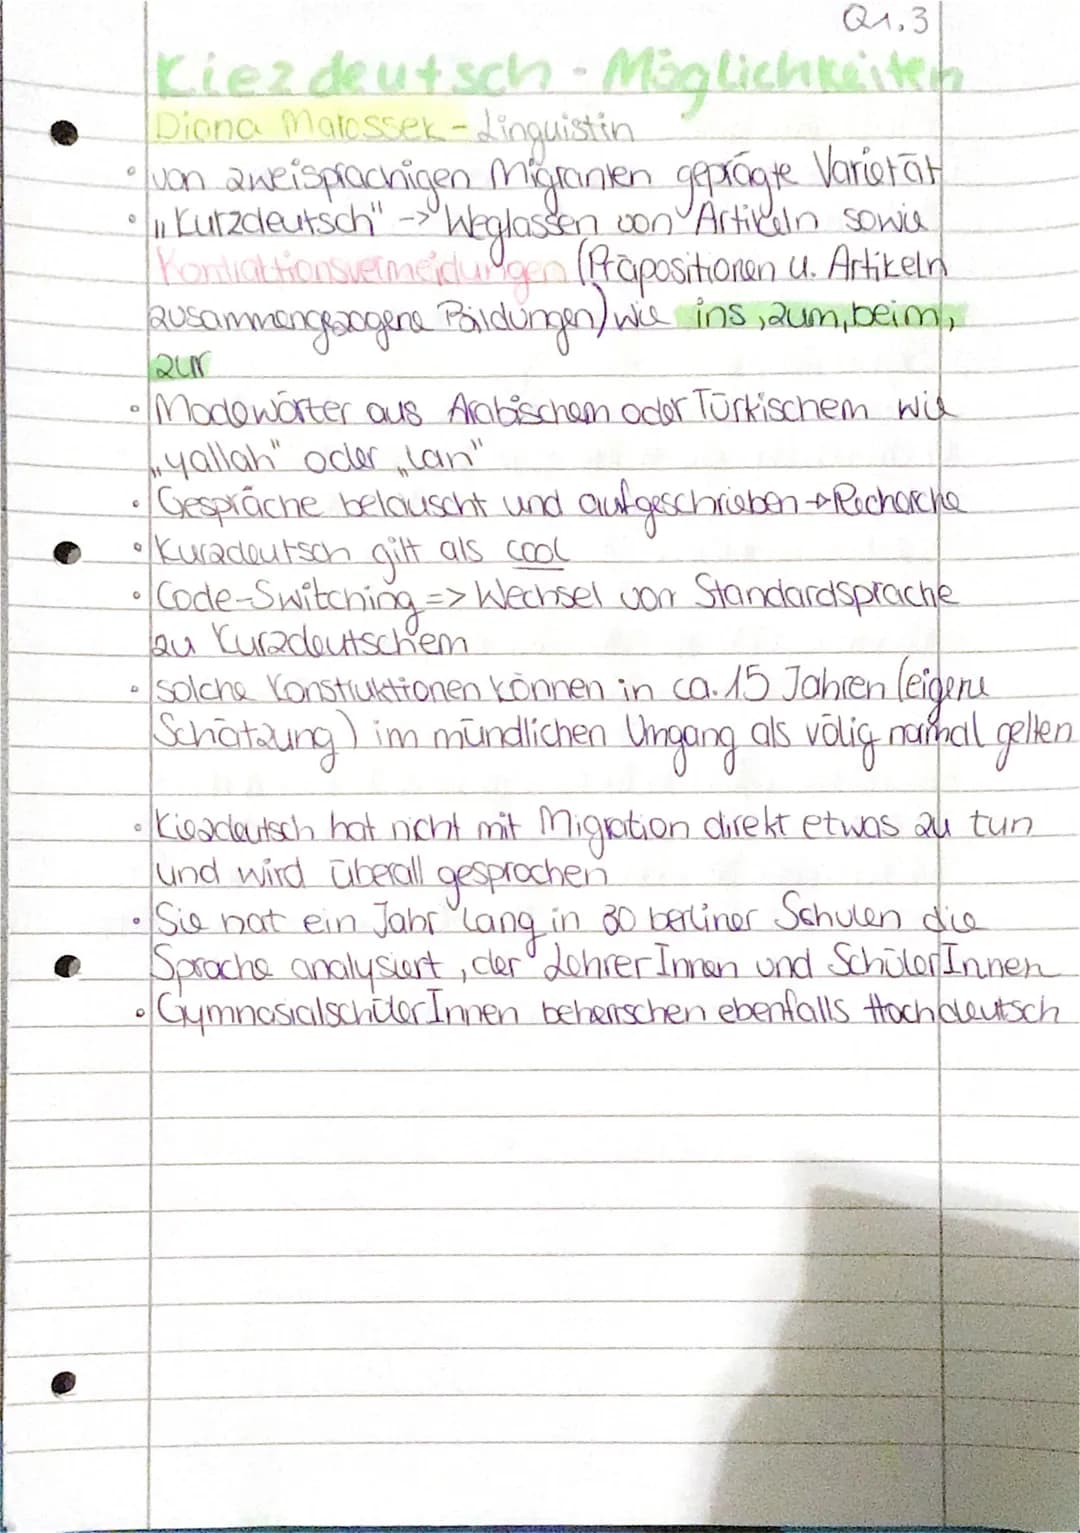 Q1.3
Kiezdeutsch - Möglichkeiten
Diana Marossek - Linguistin
• von zweisprachigen Migranten geprägte Varietät
• „Kurzdeutsch" -> Weglassen von Artikeln sowie
(Präpositionen u. Artikeln
zusammengezogene Bildungen) wie ins, zum, beim,
zur
• Modewörter aus Arabischem oder Türkischem wie
„yallah" oder „lan"
• Gespräche belauscht und aufgeschrieben -> Recherche
• Kurzdeutsch gilt als cool
• Code-Switching => Wechsel von Standardsprache
zu Kurzdeutschem
• solche Konstruktionen können in ca. 15 Jahren (eigene
Schätzung) im mündlichen Umgang als völig normal gelten
• Kiezdeutsch hat nicht mit Migration direkt etwas zu tun
und wird überall gesprochen
• Sie hat ein Jahr lang in 30 berliner Schulen die
Sprache analysiert, der LehrerInnen und SchülerInnen
• GymnasialschülerInnen beherrschen ebenfalls Hochdeutsch